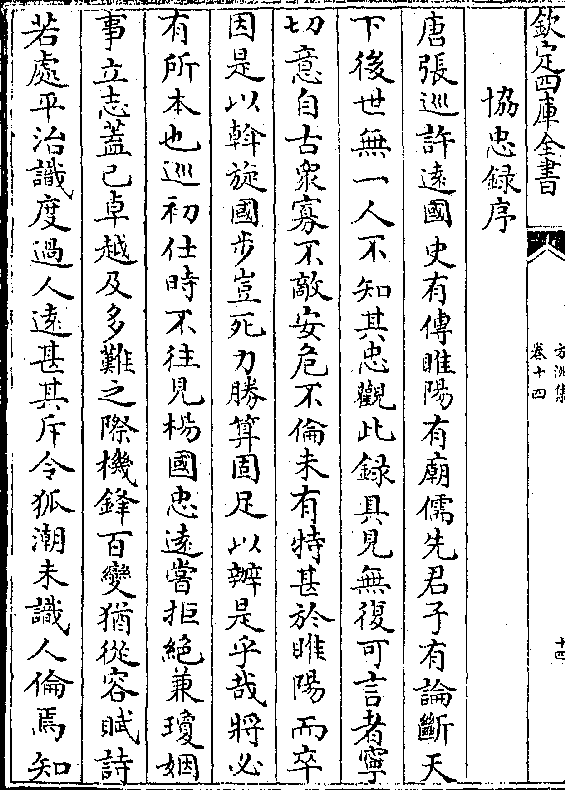 欽定四庫全書
方洲集
卷十四
十四
協忠録序
唐張巡許逺國史有傳睢陽有廟儒先君子有論斷天
下後世無一人不知其忠觀此録具見無復可言者寧
切意自古衆寡不敵安危不倫未有特甚於睢陽而卒
因是以斡旋國步豈死力勝算固足以辦是乎哉將必
有所本也巡初仕時不往見楊國忠逺嘗拒絶兼瓊姻
事立志蓋已卓越及多難之際機鋒百變猶從容賦詩
若處平治識度過人逺甚其斥令狐潮未識人倫焉知